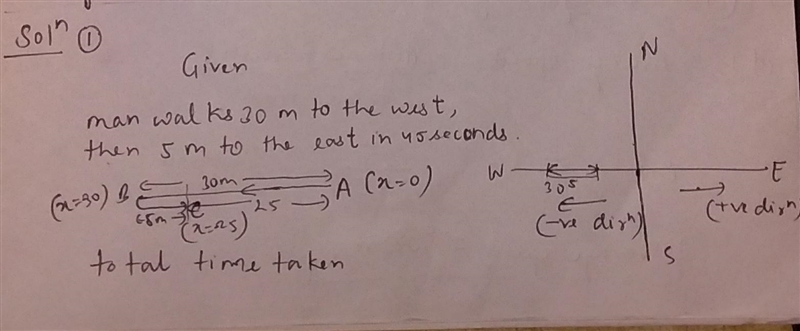 Solⁿ ①
Given
man walks 30 m to the west,
then 5 m to the east in 45 seconds.
(x=30) B 30m A (x=0)
5m C 25
(x=25)
total time taken
N
W E
30 5
(-ve dirⁿ) (+ve dirⁿ)
S